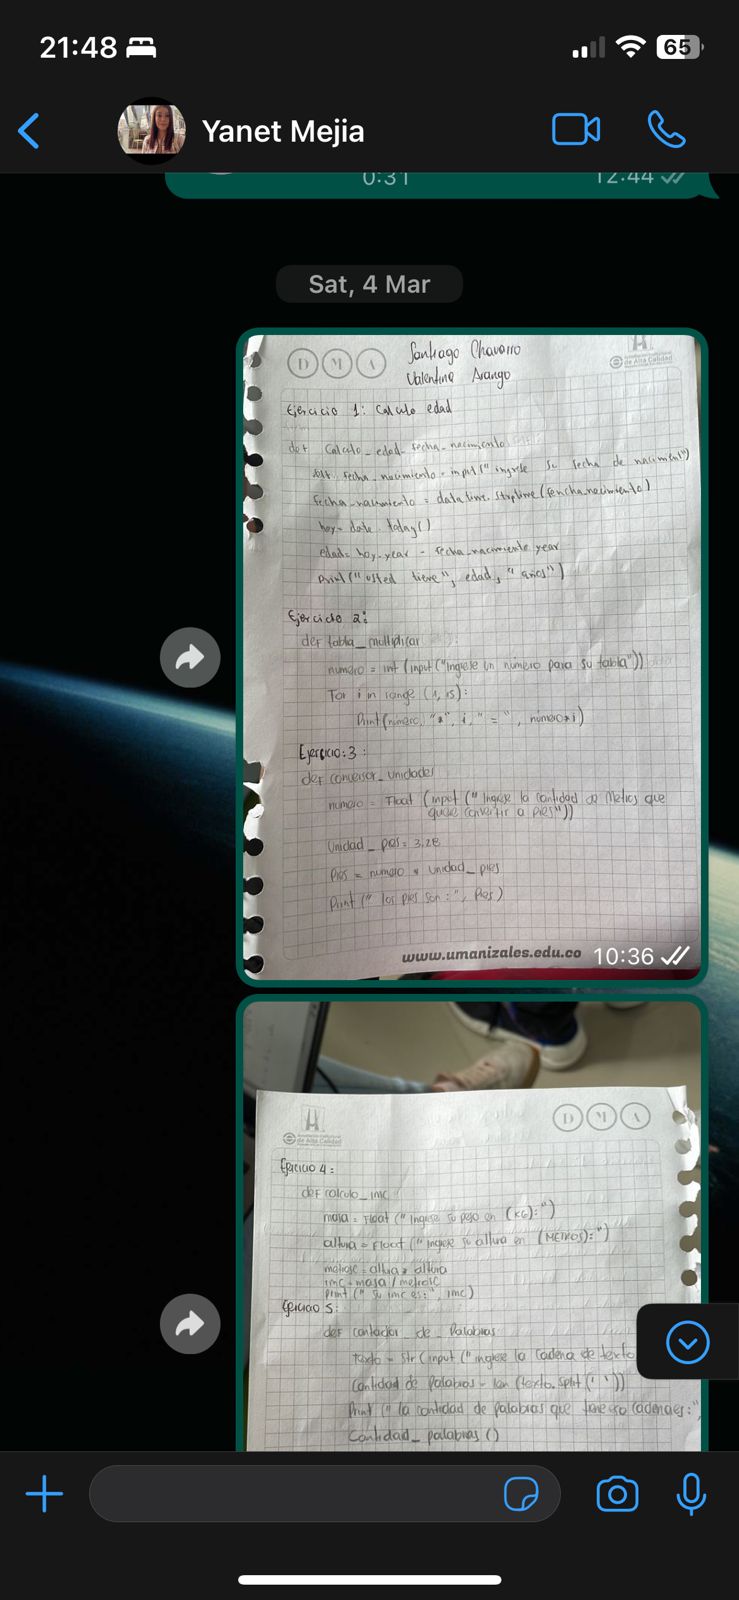 21:48
65
Yanet Mejia
0:31 12:44
Sat, 4 Mar
D M A
Santiago Chavarro
Valentina Arango
de Alta Calidad
Ejercicio 1: Calculo edad
def Calculo_edad_fecha_nacimiento
fecha_nacimiento = input(" ingrese su fecha de naciment")
fecha_nacimiento = datatime.strptime(fenchanacimiento)
hoy = date.today()
edad = hoy.year - fecha_nacimiento.year
Print("usted tiene", edad, "años")
Ejercicio 2:
def tabla_multiplicar
numero = int (input("Ingrese un número para su tabla"))
For i in range (1, 15):
Print(número, "*", i, "=", número*i)
Ejercicio: 3:
def conversor_unidades
numero = Float (input (" Ingrese la cantidad de Metros que
quiere convertir a pies"))
Unidad_pies = 3.28
Pies = numero * unidad_pies
Print (" los pies son:", Pies)
www.umanizales.edu.co 10:36
de Alta Calidad
D M A
Ejercicio 4:
def calculo_imc
masa = Float (" Ingrese su peso en (KG):")
altura = Float (" ingrese su altura en (METROS):")
altura * altura
imc = masa /
print (" su imc es:", imc)
Ejercicio 5:
def contador_de_Palabras
texto = Str (input (" ingrese la cadena de texto
Cantidad de palabras = len (texto.split (' '))
Print (" la cantidad de palabras que tiene
Cantidad_palabras ()